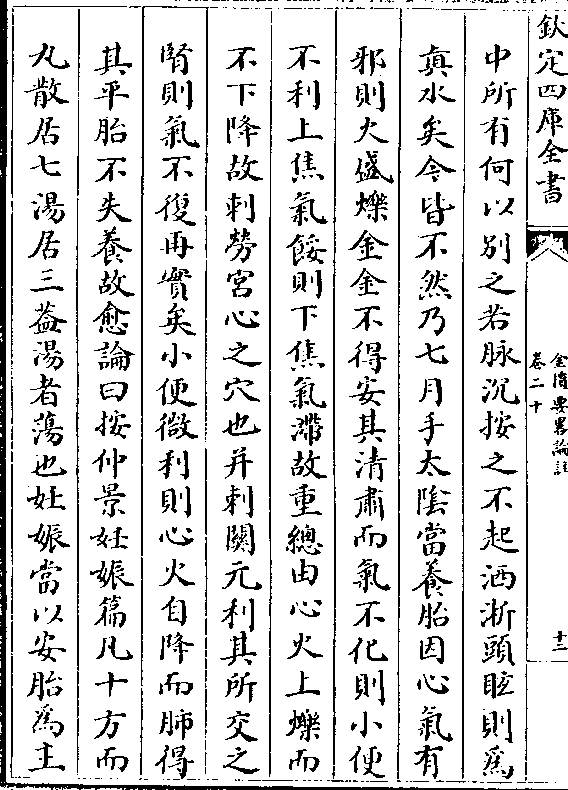 欽定四庫全書
金匱要畧論註
卷二十
十三
中所有何以别之若脉沉按之不起洒淅頭眩則為
真水矣今皆不然乃七月手太陰當養胎因心氣有
邪則火盛爍金金不得安其清肅而氣不化則小便
不利上焦氣餒則下焦氣滯故重總由心火上爍而
不下降故刺勞宮心之穴也并刺關元利其所交之
腎則氣不復再實矣小便微利則心火自降而肺得
其平胎不失養故愈論曰按仲景妊娠篇凡十方而
丸散居七湯居三葢湯者蕩也妊娠當以安胎為主